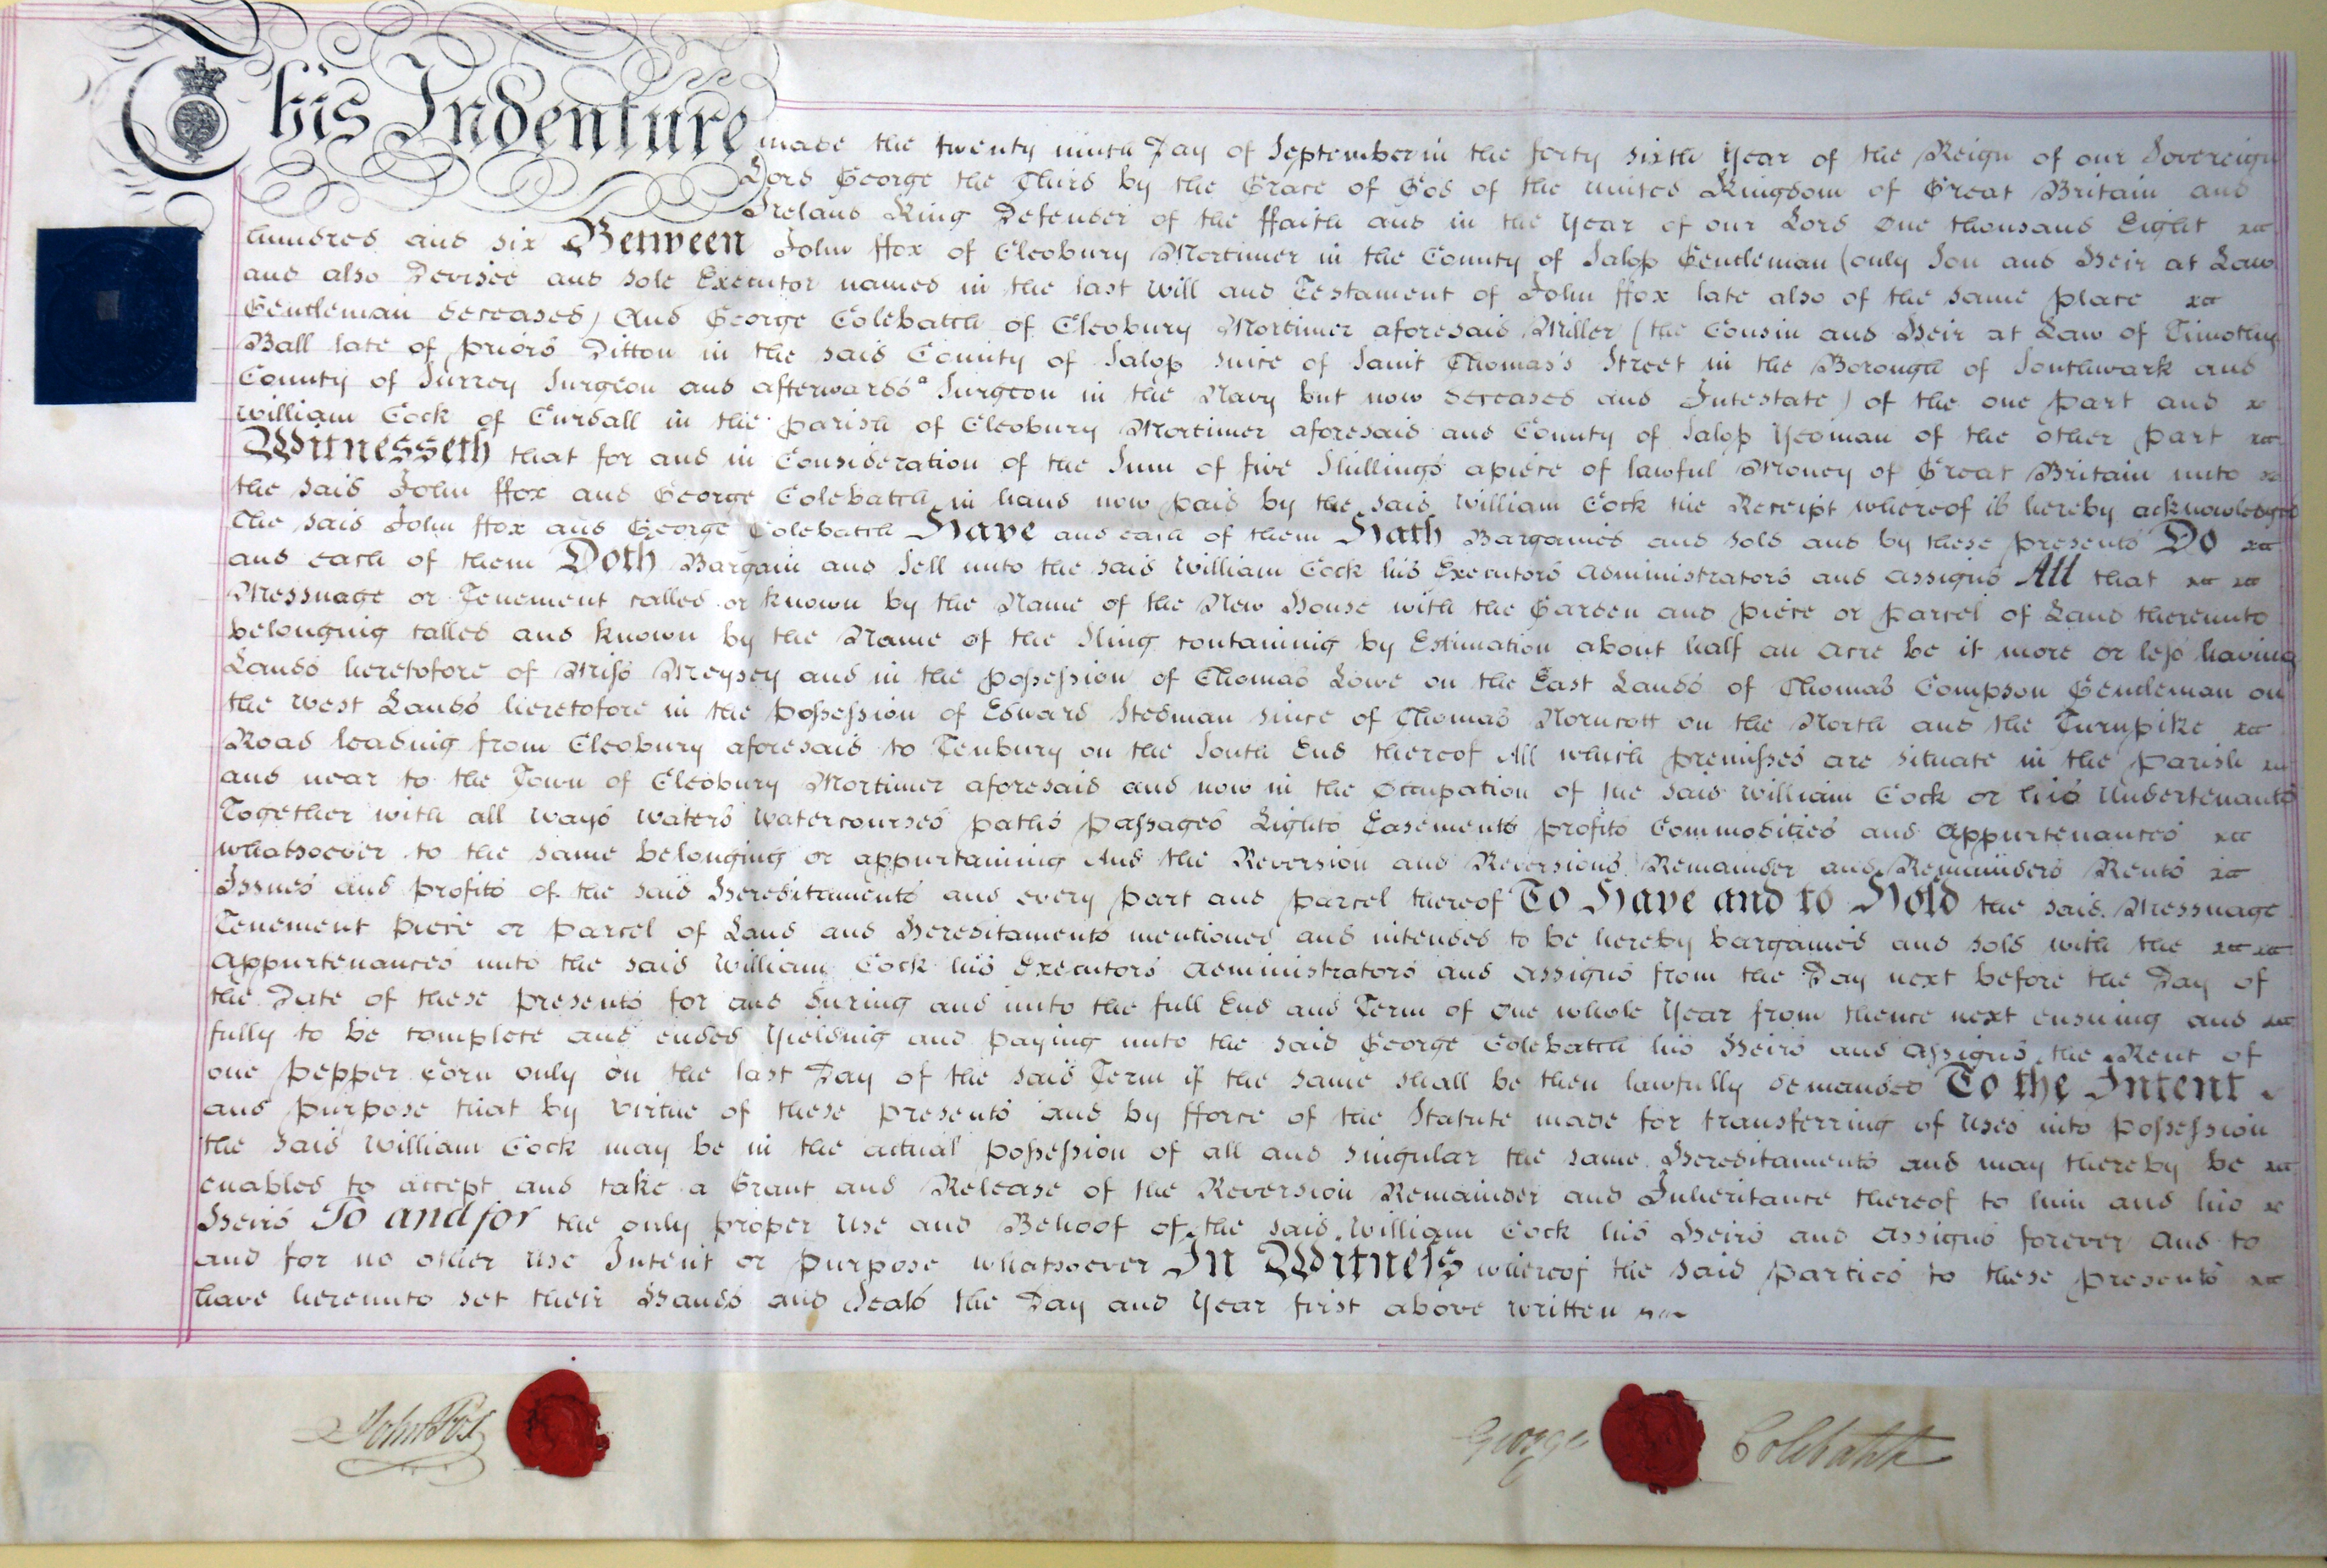 This Indenture made the twenty ninth Day of September in the forty sixth Year of the Reign of our Sovereign
Lord George the Third by the Grace of God of the united Kingdom of Great Britain and
Ireland King Defender of the ffaith and in the Year of our Lord One thousand Eight
hundred and six Between John ffox of Cleobury Mortimer in the County of Salop Gentleman (only Son and Heir at Law
and also Devisee and sole Executor named in the last Will and Testament of John ffox late also of the same place
Gentleman deceased) And George Colebatch of Cleobury Mortimer aforesaid Miller (the Cousin and Heir at Law of Timothy
Ball late of priors Ditton in the said County of Salop since of Saint Thomas's Street in the Borough of Southwark and
County of Surrey Surgeon and afterwards a Surgeon in the Navy but now deceased and Intestate) of the one part and
William Cock of Curdall in the parish of Cleobury Mortimer aforesaid and County of Salop Yeoman of the other part
Witnesseth that for and in Consideration of the Sum of five Shillings apiece of lawful Money of Great Britain unto
the said John ffox and George Colebatch in hand now paid by the said William Cock the Receipt whereof is hereby acknowledged
The said John ffox and George Colebatch Have and each of them Hath Bargained and sold and by these presents Do
and each of them Doth Bargain and Sell unto the said William Cock his Executors Administrators and Assigns All that
Messuage or Tenement called or known by the Name of the New House with the Garden and piece or parcel of Land thereunto
belonging called and known by the Name of the Sling containing by Estimation about half an Acre be it more or less having
Lands heretofore of Miss Meysey and in the possession of Thomas Lowe on the East Lands of Thomas Compson Gentleman on
the West Lands heretofore in the possession of Edward Stedman since of Thomas Norncott on the North and the Turnpike
Road leading from Cleobury aforesaid to Tenbury on the South End thereof All which premisses are situate in the parish
and near to the Town of Cleobury Mortimer aforesaid and now in the Occupation of the said William Cock or his Undertenants
Together with all Ways Waters Watercourses paths passages Lights Easements profits Commodities and Appurtenances
whatsoever to the same belonging or appurtaining And the Reversion and Reversions Remainder and Remainders Rents
Issues and profits of the said Hereditaments and every part and parcel thereof To Have and to Hold the said Messuage
Tenement piece or parcel of Land and Hereditaments mentioned and intended to be hereby bargained and sold with the
Appurtenances unto the said William Cock his Executors Administrators and Assigns from the Day next before the Day of
the Date of these presents for and during and unto the full End and Term of One whole Year from thence next ensuing and
fully to be complete and ended Yielding and paying unto the said George Colebatch his Heirs and Assigns the Rent of
one pepper Corn only on the last Day of the said Term if the same shall be then lawfully demanded To the Intent
and purpose that by Virtue of these presents and by fforce of the Statute made for transferring of Uses into possession
the said William Cock may be in the actual possession of all and singular the same Hereditaments and may thereby be
enabled to accept and take a Grant and Release of the Reversion Remainder and Inheritance thereof to him and his
Heirs To and for the only proper Use and Behoof of the said William Cock his Heirs and Assigns forever And to
and for no other Use Intent or purpose whatsoever In Witness whereof the said parties to these presents
have hereunto set their Hands and Seals the Day and Year first above written
John Fox
George Colebatch